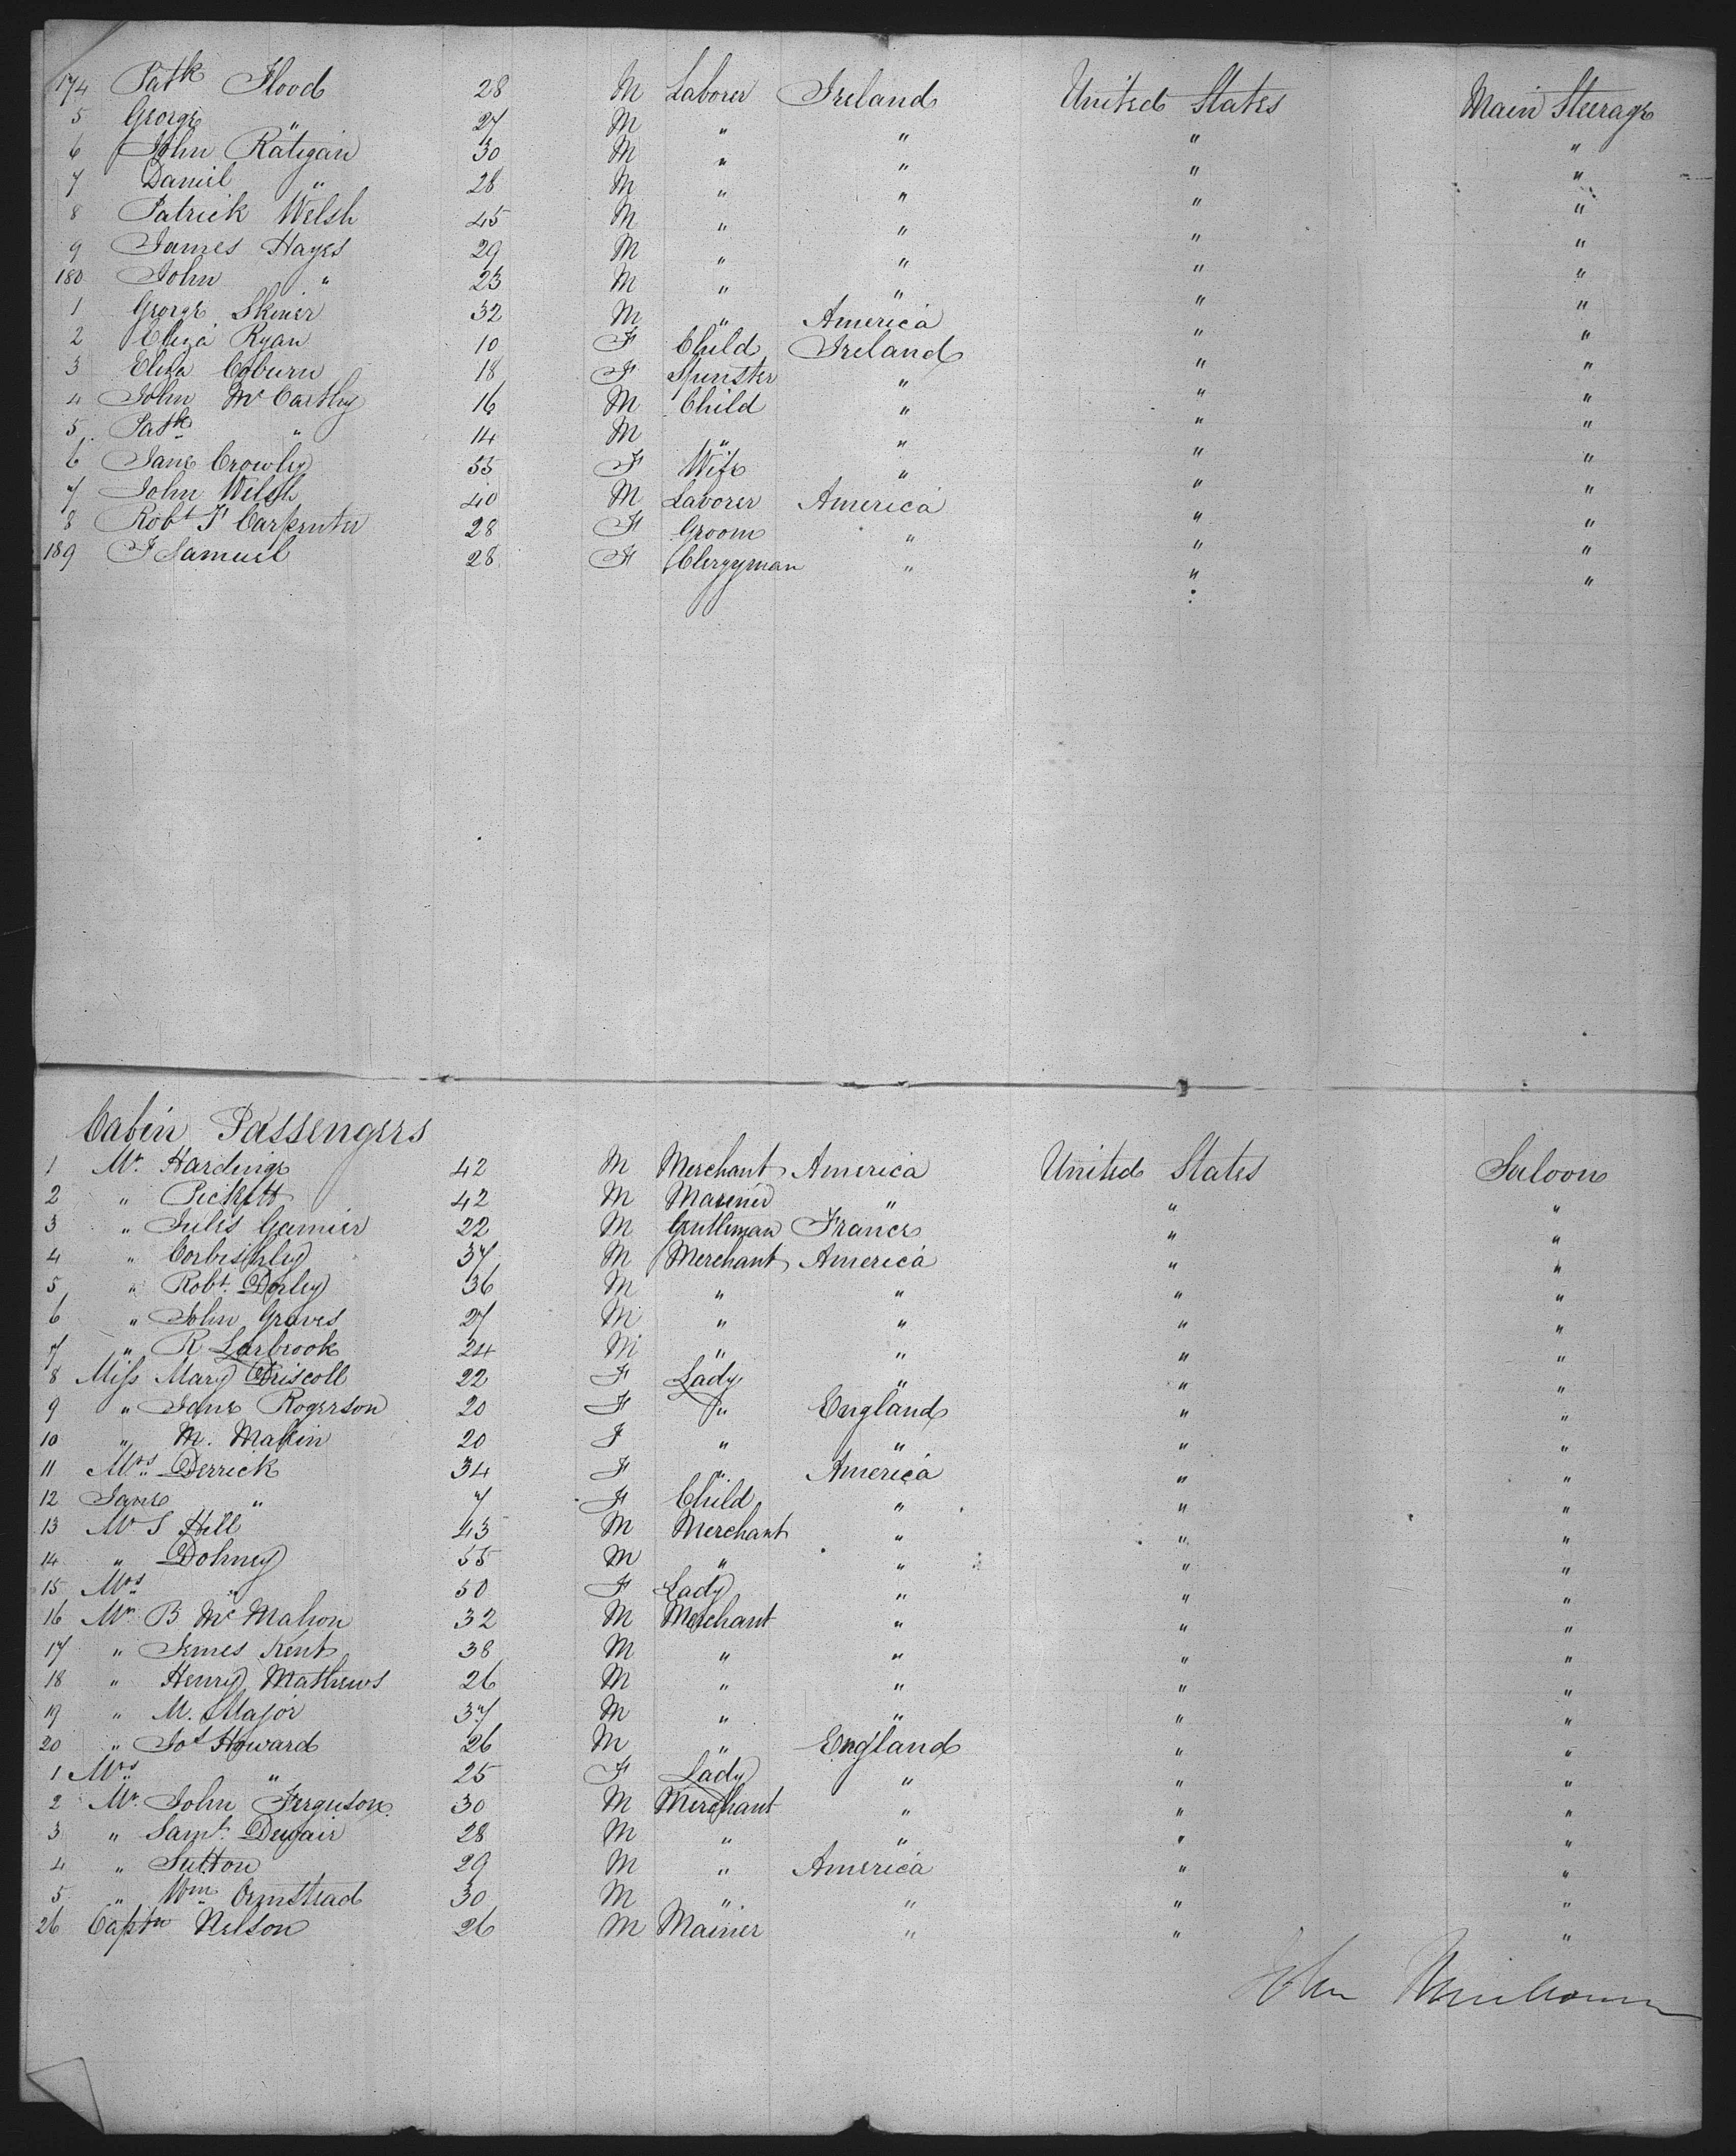 174 Patk Flood 28 M Laborer Ireland United States Main Steerage
5 George " 27 M " " " "
6 John Ratigan 30 M " " " "
7 Daniel " 28 M " " " "
8 Patrick Welsh 45 M " " " "
9 James Hayes 29 M " " " "
180 John " 23 M " " " "
1 George Skiner 32 M " America " "
2 Eliza Ryan 10 F Child Ireland " "
3 Eliza Coburn 18 F Spinster " " "
4 John McCarthy 16 M Child " " "
5 Patk " 14 M " " " "
6 Jane Crowley 55 F Wife " " "
7 John Welsh 40 M Laborer America " "
8 Robt F Carpenter 28 F Groom " " "
189 F Samuel 28 F Clergyman " " "
Cabin Passengers
1 Mr. Hardinge 42 M Merchant America United States Saloon
2 " Pickett 42 M Marenir " " "
3 " Jules Garnier 22 M Gentleman France " "
4 " Corbishley 37 M Merchant America " "
5 " Robt. Dorley 36 M " " " "
6 " John Graves 27 M " " " "
7 " R Larbrook 24 M " " " "
8 Miss Mary Driscoll 22 F Lady " " "
9 " Jane Rogerson 20 F " England " "
10 " M. Makin 20 F " " " "
11 Mrs Derrick 34 F " America " "
12 Jane " 7 F Child " " "
13 Mr S Hill 43 M Merchant " " "
14 " Dohney 55 M " " " "
15 Mrs " 50 F Lady " " "
16 Mr B McMahon 32 M Merchant " " "
17 " James Kent 38 M " " " "
18 " Henry Mathews 26 M " " " "
19 " M. Major 37 M " " " "
20 " Jos Howard 26 M " England " "
1 Mrs " 25 F Lady " " "
2 Mr. John Ferguson 30 M Merchant " " "
3 " Saml. 28 M " " " "
4 " Sutton 29 M " America " "
5 " Wm Ormstead 30 M " " " "
26 Captn Nelson 26 M Mainer " " "
John